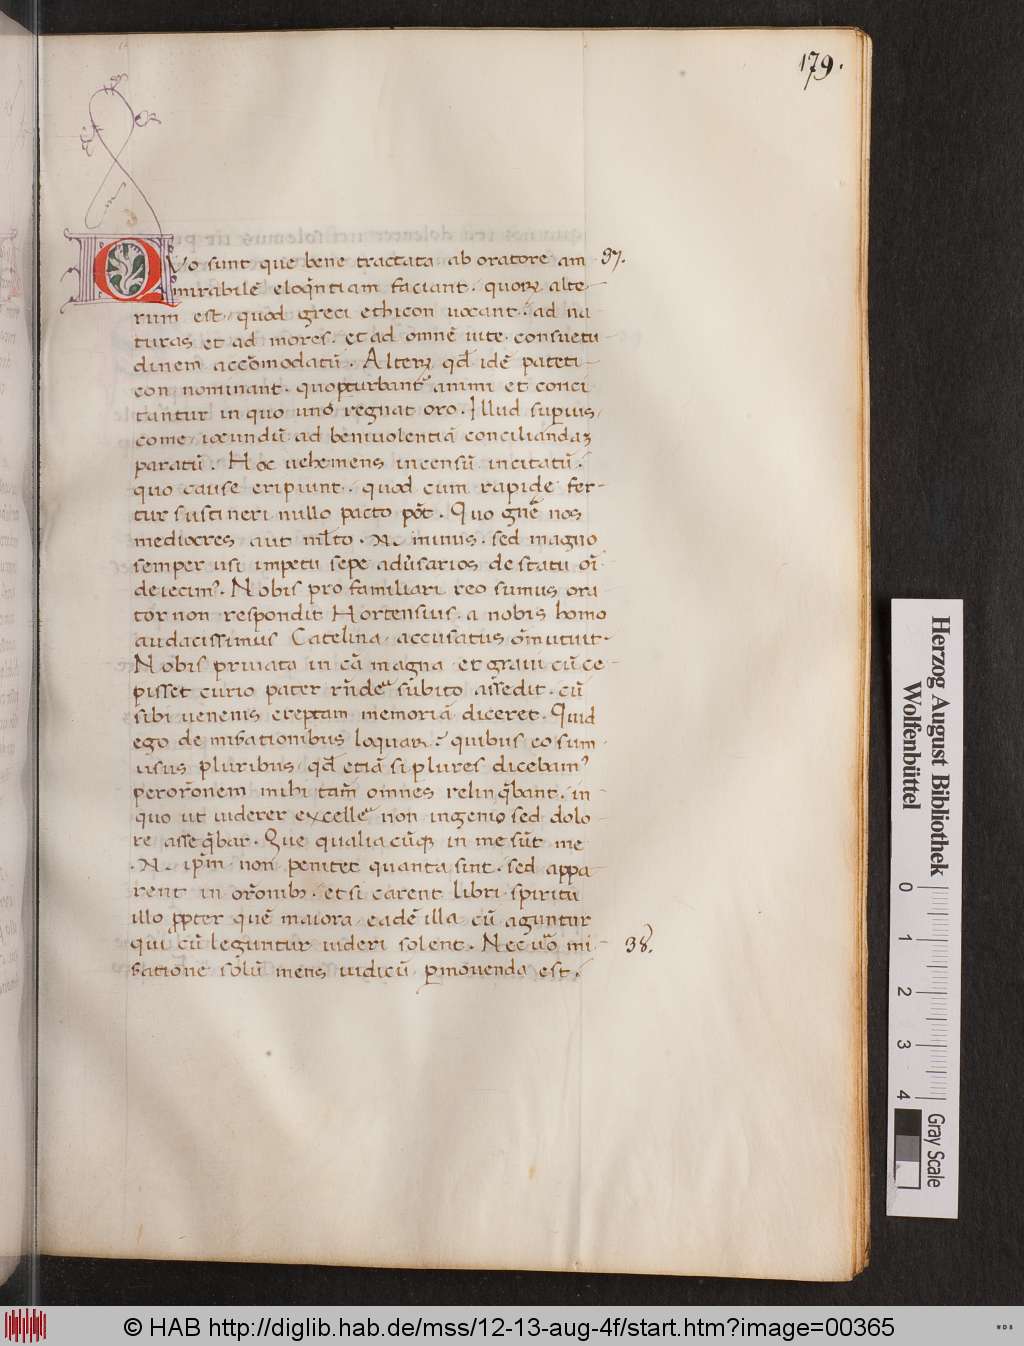 179.
QVo sunt que bene tractata ab oratore am
37.
mirabilē eloq̄ntiam faciant. quoꝝ alte-
rum est. quod greci ethicon uocant. ad na
turas et ad mores. et ad omnē uite consuetu
dinem accōmodatū. Alterꝝ qd̄ idē pateti-
con nominant. quo ꝑturbantᷣ animi et conci
tantur in quo uno regnat oro. Illud supius
come iocundū ad beniuolentiā conciliandaꝫ
paratū. Hoc uehemens incensū incitatū.
quo cause eripiunt. quod cum rapide fer-
tur sustineri nullo pacto pōt. Quo gn̄e nos
mediocres aut ml̄to .N. minus. sed magno
semper usi impetu sepe adu̓sarios de statu oī
deiecimꝰ. Nobis pro familiari reo sumus ora
tor non respondit Hortensius. a nobis homo
audacissimus Catelina accusatus om̄utuit.
Nobis priuata in cā magna et graui cū ce-
pisset curio pater rn̄de subito assedit. cū
sibi uenenis ereptam memoriā diceret. Quid
ego de mis̄ationibus loquar? quibus eo sum
usus pluribus qd̄ etiā si plures dicebamꝰ
perorōnem mihi tam̄ omnes relinq̄bant. in
quo ut uiderer excelle non ingenio sed dolo-
re asseq̄bar. Que qualiacūqꝫ in me sūt me
.N. ip̄m non penitet quanta sint. sed appa-
rent in orōnibꝫ. et si carent libri spiritu
illo ꝓpter quē maiora eadē illa cū aguntur
qui cū leguntur uideri solent. Nec uō mi-
38.
s̄atione solū mens iudicū ꝑmouenda est.
Herzog August Bibliothek
Wolfenbüttel
0 1 2 3 4
Gray Scale
© HAB http://diglib.hab.de/mss/12-13-aug-4f/start.htm?image=00365